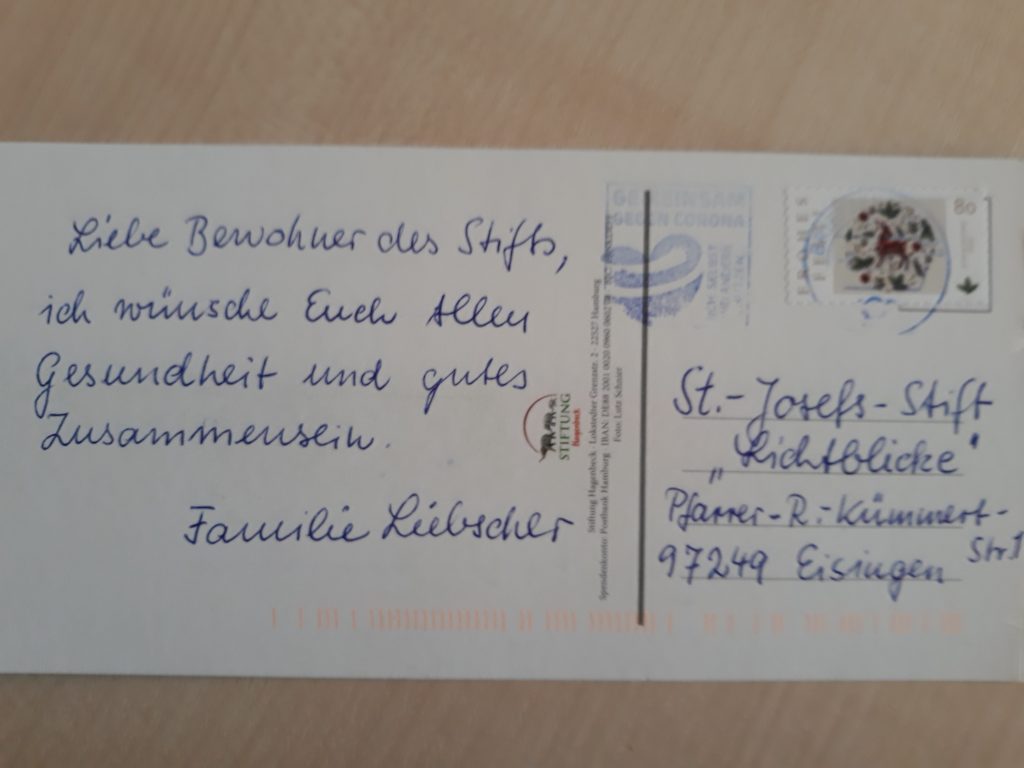 Liebe Bewohner des Stifts,
ich wünsche Euch Allen
Gesundheit und gutes
Zusammensein.
Familie Liebscher
STIFTUNG
Hagenbeck
Stiftung Hagenbeck · Lokstedter Grenzstr. 2 · 22527 Hamburg
Spendenkonto: Postbank Hamburg IBAN: DE88 2001 0020
Foto: Lutz Schnier
GEMEINSAM
GEGEN CORONA
FROHES
80
St.-Josefs-Stift
„Lichtblicke"
Pfarrer-R.-Kümmert-
Str.1
97249 Eisingen